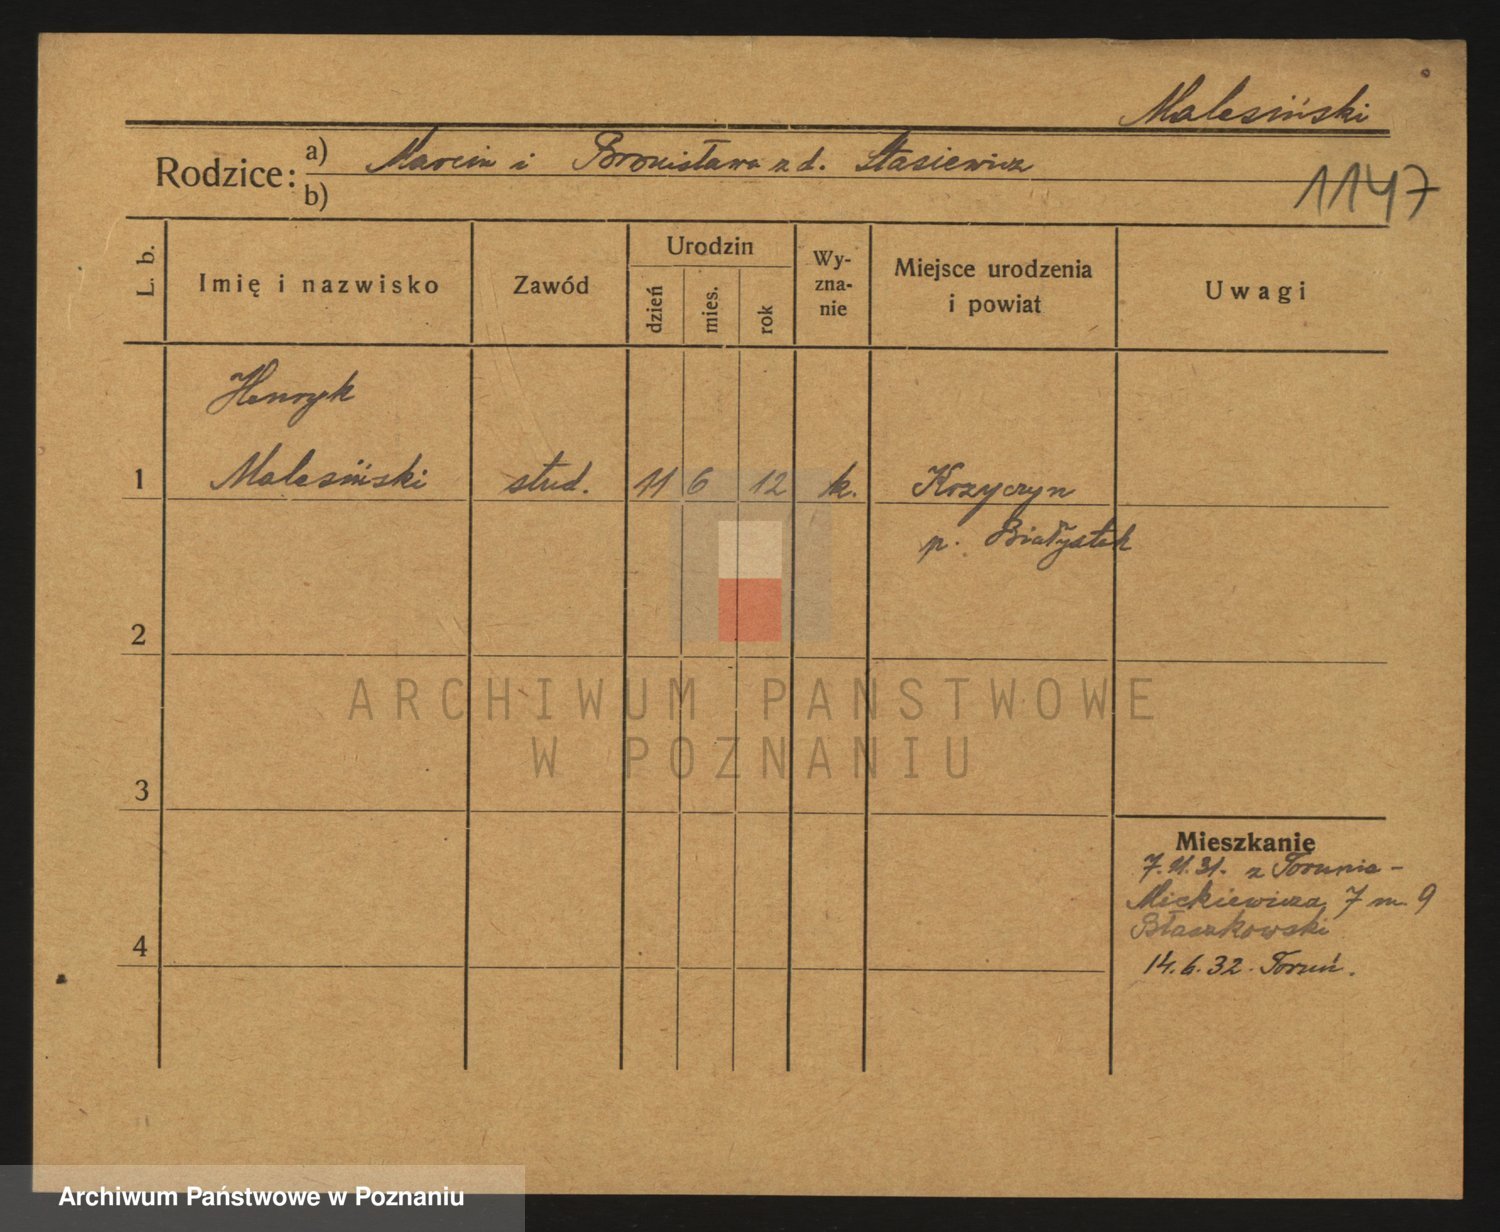 Malesiński
Rodzice: a) Marcin i Bronisława z d. Stasiewicz
b)
1147
L. b.
Imię i nazwisko
Zawód
Urodzin
dzień
mies.
rok
Wy-
zna-
nie
Miejsce urodzenia
i powiat
Uwagi
Henryk
1 Malesiński stud. 11 6 12 k. Krzyczyn
p. Białystok
2
ARCHIWUM PAŃSTWOWE
W POZNANIU
3
Mieszkanie
7.11.31. z Torunia -
Mickiewicza 7 m. 9
Błaszkowski
4
14.6.32. Toruń.
Archiwum Państwowe w Poznaniu